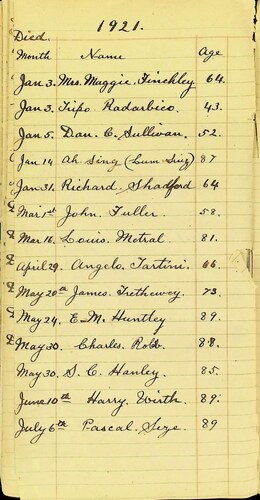 1921.
Died.
Month Name Age
Jan 3. Mrs. Maggie Finchley 64.
Jan 3. Tripo Radarbico. 43.
Jan 5. Dan. C. Sullivan. 52.
Jan 14 Ah Sing (Lum Sing) 87
Jan 31. Richard Shadford 64
Mar 1st John Fuller. 58.
Mar 16. Louis Motral. 81.
April 29. Angelo Tartini. 66.
May 20th James Trethewey. 73.
May 24. E. M. Huntley 89.
May 30. Charles Robb. 88.
May 30. S. C. Hanley. 85.
June 10th Harry Wirth. 89.
July 6th Pascal Seze. 89